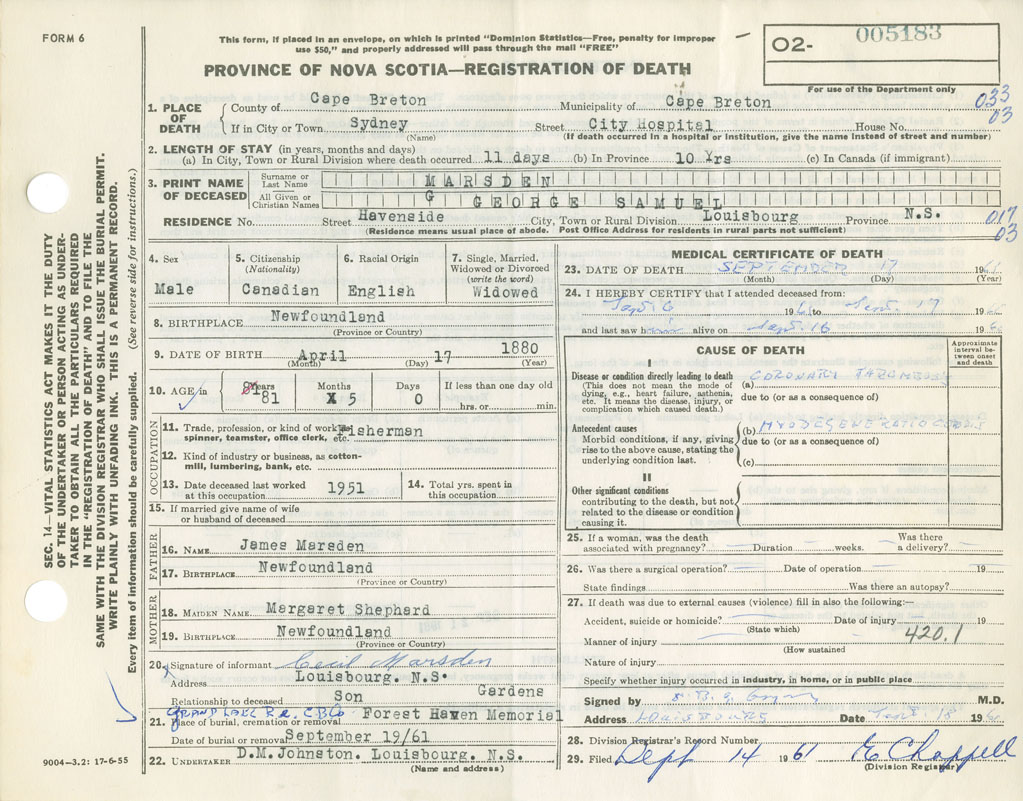 FORM 6
This form, if placed in an envelope, on which is printed "Dominion Statistics—Free, penalty for improper
use $50," and properly addressed will pass through the mail "FREE"
PROVINCE OF NOVA SCOTIA—REGISTRATION OF DEATH
O2- 005183
For use of the Department only
SEC. 14—VITAL STATISTICS ACT MAKES IT THE DUTY
OF THE UNDERTAKER OR PERSON ACTING AS UNDER-
TAKER TO OBTAIN ALL THE PARTICULARS REQUIRED
IN THE "REGISTRATION OF DEATH" AND TO FILE THE
SAME WITH THE DIVISION REGISTRAR WHO SHALL ISSUE THE BURIAL PERMIT.
WRITE PLAINLY WITH UNFADING INK. THIS IS A PERMANENT RECORD.
Every item of information should be carefully supplied. (See reverse side for instructions.)
1. PLACE OF DEATH
County of Cape Breton Municipality of Cape Breton 033
If in City or Town Sydney Street City Hospital House No. 03
(Name) (If death occurred in a hospital or institution, give the name instead of street and number)
2. LENGTH OF STAY (in years, months and days)
(a) In City, Town or Rural Division where death occurred 11 days (b) In Province 10 Yrs (c) In Canada (if immigrant)
3. PRINT NAME OF DECEASED
Surname or Last Name MARSDEN
All Given or Christian Names G GEORGE SAMUEL
RESIDENCE No. Street Havenside City, Town or Rural Division Louisbourg Province N.S. 017
(Residence means usual place of abode. Post Office Address for residents in rural parts not sufficient) 03
4. Sex
Male
5. Citizenship
(Nationality)
Canadian
6. Racial Origin
English
7. Single, Married,
Widowed or Divorced
(write the word)
Widowed
8. BIRTHPLACE Newfoundland
(Province or Country)
9. DATE OF BIRTH April 17 1880
(Month) (Day) (Year)
10. AGE in Years 81 Months X 5 Days 0 If less than one day old
hrs. or min.
OCCUPATION
11. Trade, profession, or kind of work as Fisherman
spinner, teamster, office clerk, etc.
12. Kind of industry or business, as cotton-
mill, lumbering, bank, etc.
13. Date deceased last worked
at this occupation 1951
14. Total yrs. spent in
this occupation
15. If married give name of wife
or husband of deceased
FATHER
16. NAME James Marsden
17. BIRTHPLACE Newfoundland
(Province or Country)
MOTHER
18. MAIDEN NAME Margaret Shephard
19. BIRTHPLACE Newfoundland
(Province or Country)
20. Signature of informant Cecil Marsden
Address Louisbourg. N.S.
Relationship to deceased Son
Gardens
GRAND LAKE Rd. C.B.Co
21. Place of burial, cremation or removal Forest Haven Memorial
Date of burial or removal September 19/61
22. UNDERTAKER D.M.Johnston. Louisbourg. N.S.
(Name and address)
9004—3.2: 17-6-55
MEDICAL CERTIFICATE OF DEATH
23. DATE OF DEATH SEPTEMBER 17 1961
(Month) (Day) (Year)
24. I HEREBY CERTIFY that I attended deceased from:
Sept 6 1961 to Sept. 17 19
and last saw h alive on Sept 16 19
CAUSE OF DEATH
Approximate
interval be-
tween onset
and death
I
Disease or condition directly leading to death
(This does not mean the mode of
dying, e.g., heart failure, asthenia,
etc. It means the disease, injury, or
complication which caused death.)
(a) CORONARY
due to (or as a consequence of)
Antecedent causes
Morbid conditions, if any, giving
rise to the above cause, stating the
underlying condition last.
(b)
due to (or as a consequence of)
(c)
II
Other significant conditions
contributing to the death, but not
related to the disease or condition
causing it.
25. If a woman, was the death
associated with pregnancy? Duration weeks. Was there
a delivery?
26. Was there a surgical operation? Date of operation 19
State findings Was there an autopsy?
27. If death was due to external causes (violence) fill in also the following:—
Accident, suicide or homicide? Date of injury 19
(State which)
Manner of injury 420.1
(How sustained
Nature of injury
Specify whether injury occurred in industry, in home, or in public place
Signed by M.D.
Address Louisbourg Date Sept 18 196
28. Division Registrar's Record Number
29. Filed Sept 14 1961 Chappell
(Division Registrar)